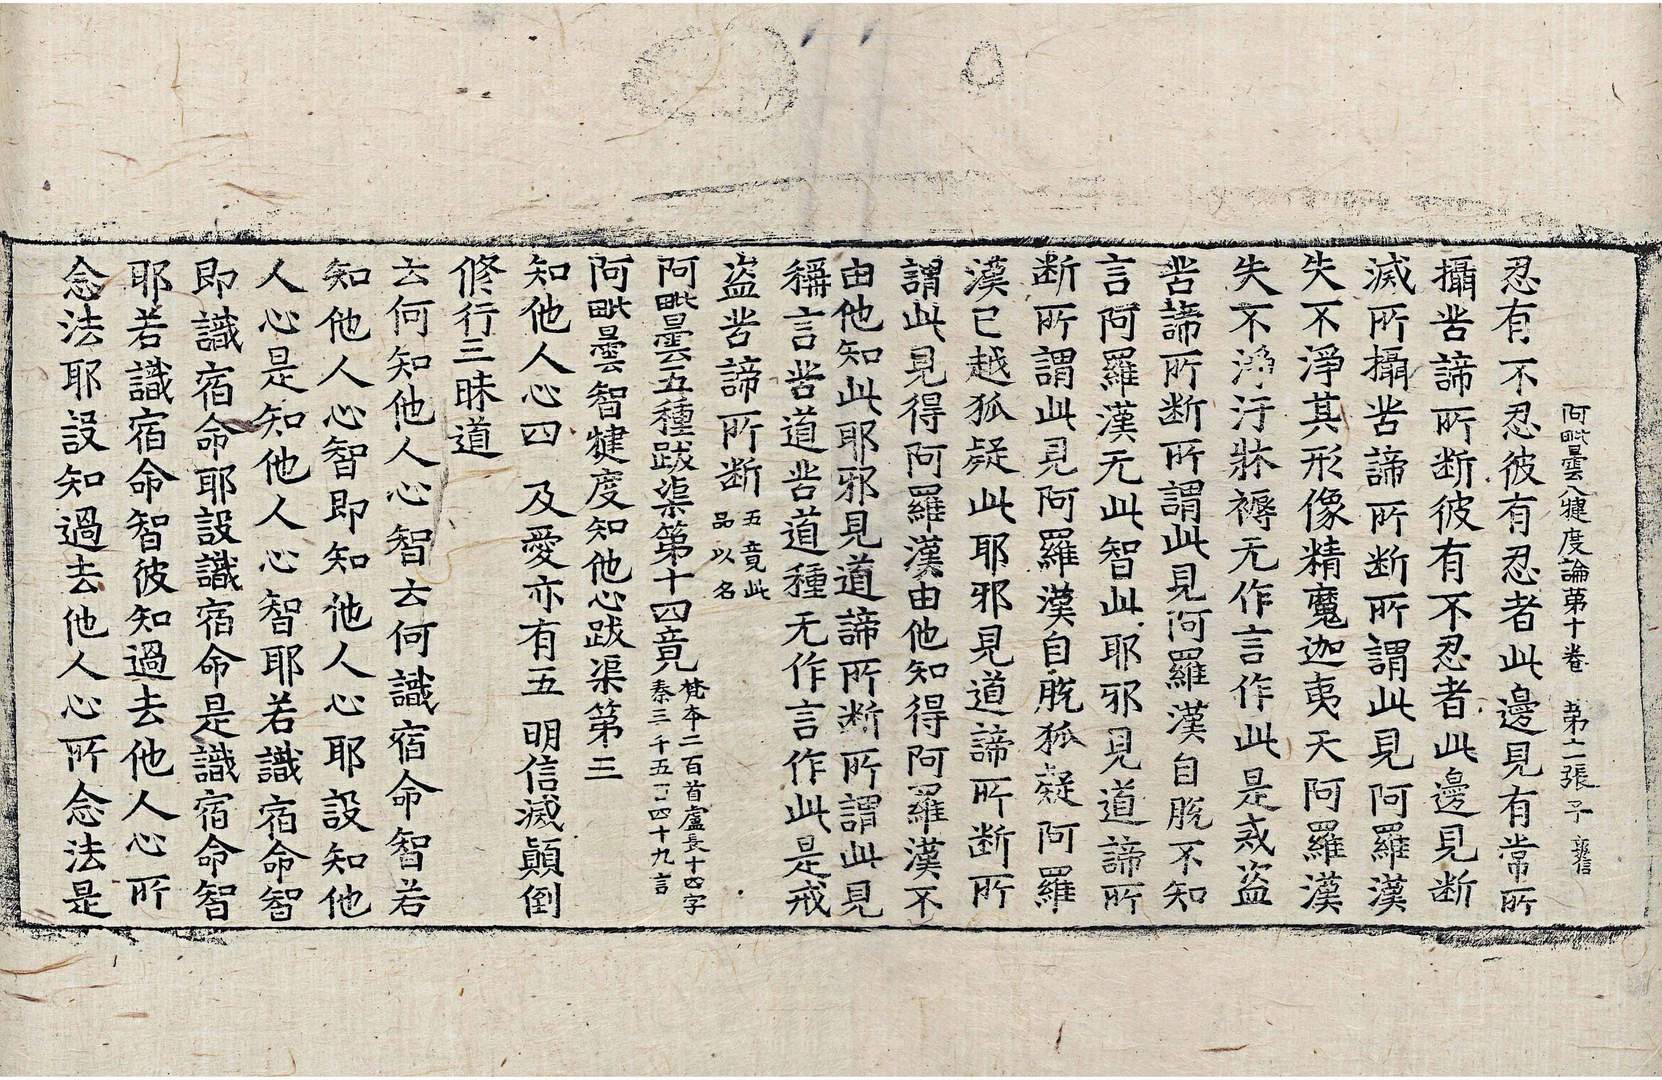 阿毗曇八犍度論第十卷　第二張　子
忍有不忍彼有忍者此邊見有常所
攝苦諦所断彼有不忍者此邊見断
滅所攝苦諦所断所謂此見阿羅漢
失不淨其形像精魔迦夷天阿羅漢
失不淨汙牀褥无作言作此是戒盜
苦諦所断所謂此見阿羅漢自脫不知
言阿羅漢无此智此耶邪見道諦所
断所謂此見阿羅漢自脫狐疑阿羅
漢已越狐疑此耶邪見道諦所断所
謂此見得阿羅漢由他知得阿羅漢不
由他知此耶邪見道諦所断所謂此見
稱言苦道苦道種无作言作此是戒
盜苦諦所断五竟此品以名
阿毗曇五種跋渠第十四竟梵本二百首盧長十四字秦三千五百四十九言
阿毗曇智犍度知他心跋渠第三
知他人心四　及愛亦有五　明信滅顚倒
修行三昧道
云何知他人心智云何識宿命智若
知他人心智即知他人心耶設知他
人心是知他人心智耶若識宿命智
即識宿命耶設識宿命是識宿命智
耶若識宿命智彼知過去他人心所
念法耶設知過去他人心所念法是